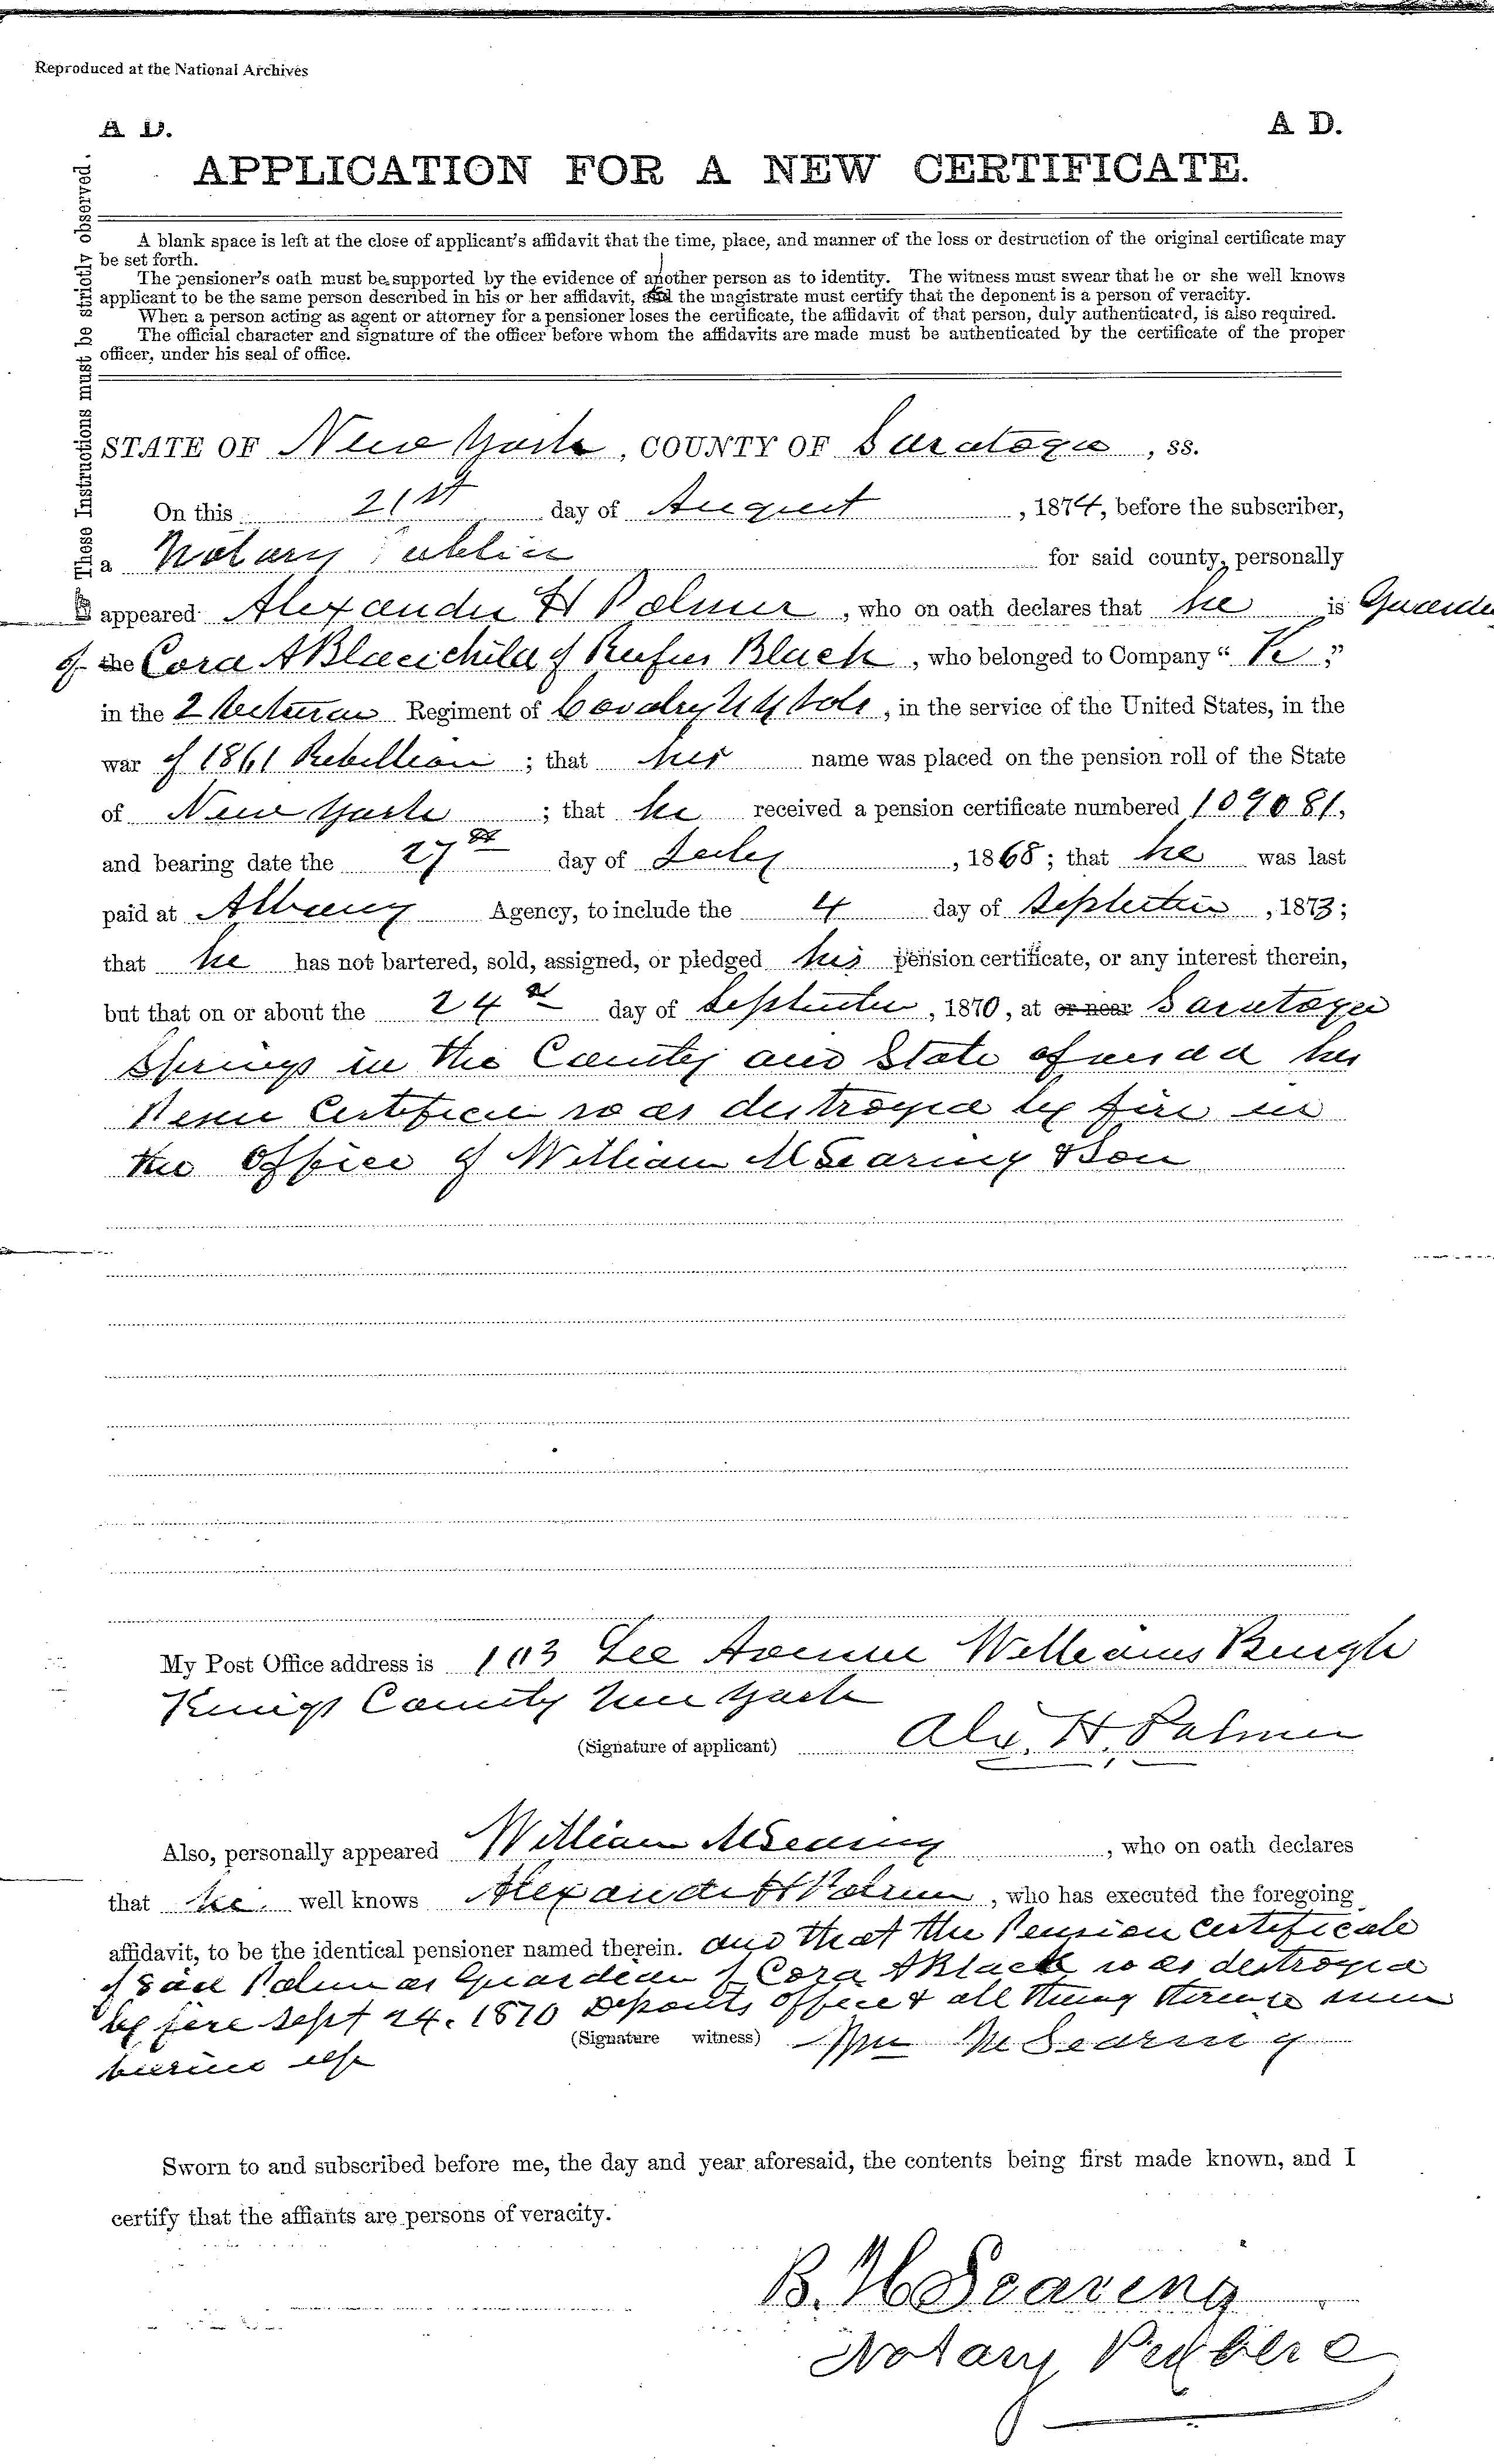 Reproduced at the National Archives
A D.
A D.
APPLICATION FOR A NEW CERTIFICATE.
These Instructions must be strictly observed.
A blank space is left at the close of applicant's affidavit that the time, place, and manner of the loss or destruction of the original certificate may
be set forth.
The pensioner's oath must be supported by the evidence of another person as to identity. The witness must swear that he or she well knows
applicant to be the same person described in his or her affidavit, and the magistrate must certify that the deponent is a person of veracity.
When a person acting as agent or attorney for a pensioner loses the certificate, the affidavit of that person, duly authenticated, is also required.
The official character and signature of the officer before whom the affidavits are made must be authenticated by the certificate of the proper
officer, under his seal of office.
STATE OF New York, COUNTY OF Saratoga, ss.
On this 21st day of August, 1874, before the subscriber,
a Notary Public for said county, personally
appeared Alexander H Palmer, who on oath declares that he is Guardian
of the Cora A Black child of Rufus Black, who belonged to Company "K"
in the 2 Veteran Regiment of Cavalry N Y Vols, in the service of the United States, in the
war of 1861 Rebellion; that his name was placed on the pension roll of the State
of New York; that he received a pension certificate numbered 109081,
and bearing date the 27th day of July, 1868; that he was last
paid at Albany Agency, to include the 4 day of September, 1873;
that he has not bartered, sold, assigned, or pledged his pension certificate, or any interest therein,
but that on or about the 24th day of September, 1870, at or near Saratoga
Springs in the County and State aforesaid his
Pension Certificate was destroyed by fire in
the Office of William M Searing & Son
My Post Office address is 103 Lee Avenue Williams Burgh
Kings County New York
(Signature of applicant) Alx. H. Palmer
Also, personally appeared William M Searing, who on oath declares
that he well knows Alexander H Palmer, who has executed the foregoing
affidavit, to be the identical pensioner named therein. and that the Pension Certificate
of said Palmer as Guardian of Cora A Black was destroyed
by fire Sept 24. 1870 Deponents office & all things therein were
burned up
(Signature witness) Wm M Searing
Sworn to and subscribed before me, the day and year aforesaid, the contents being first made known, and I
certify that the affiants are persons of veracity.
B. H Searing
Notary Public